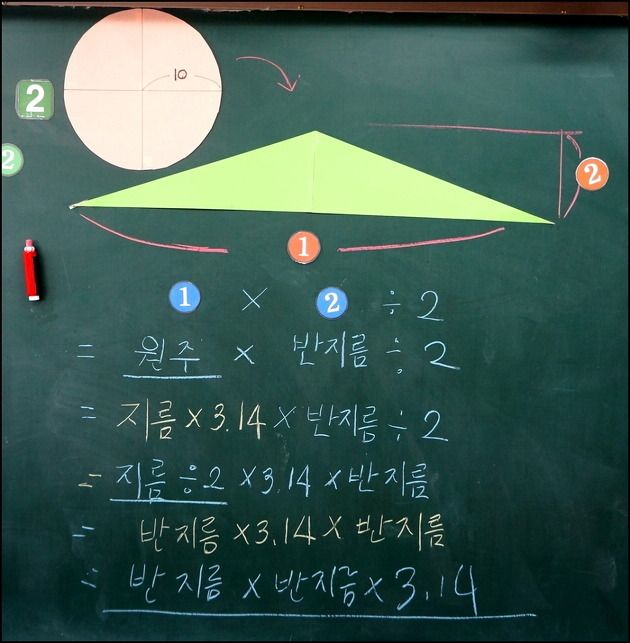 10
2
2
2
1
1 × 2 ÷ 2
= 원주 × 반지름 ÷ 2
= 지름 × 3.14 × 반지름 ÷ 2
= 지름 ÷ 2 × 3.14 × 반지름
= 반지름 × 3.14 × 반지름
= 반지름 × 반지름 × 3.14